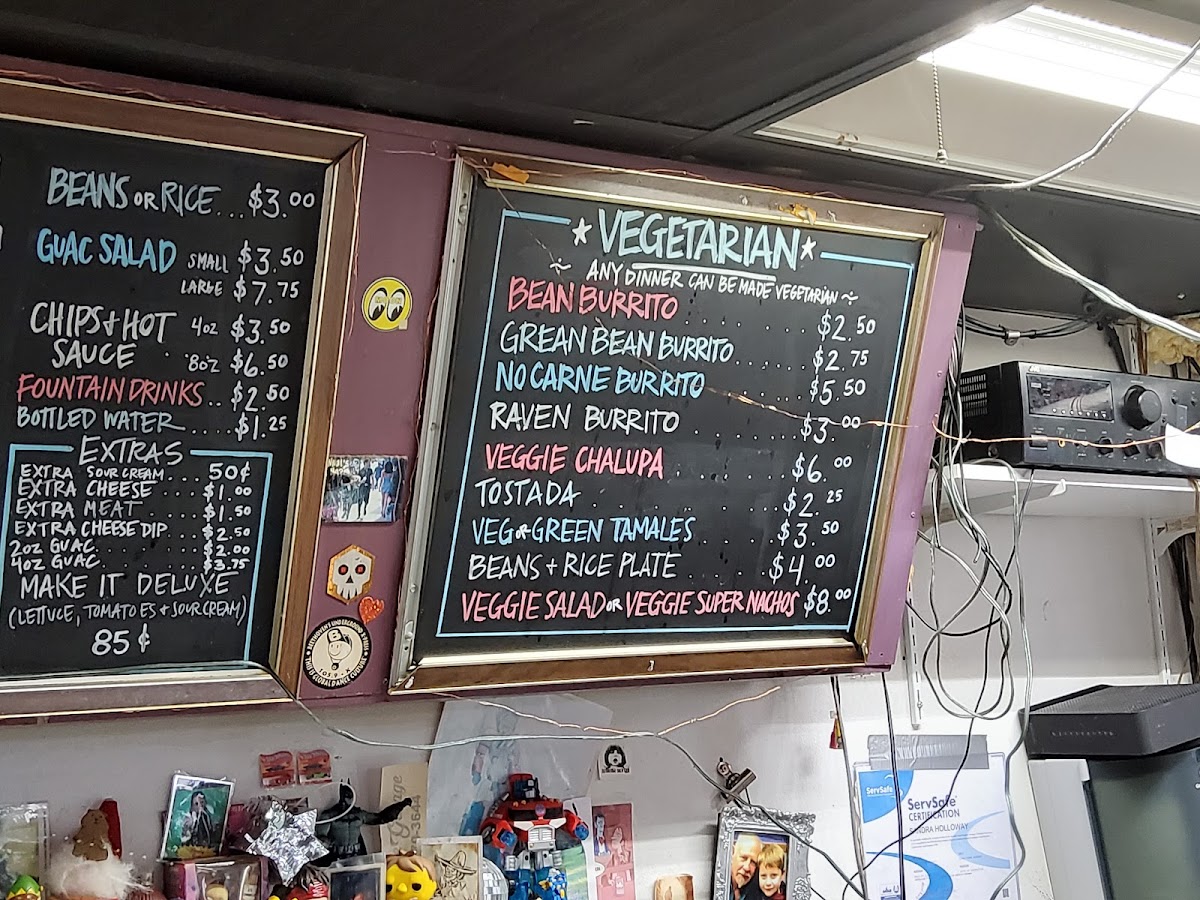 BEANS OR RICE...$3.00
GUAC SALAD SMALL $3.50
LARGE $7.75
CHIPS & HOT SAUCE 4oz $3.50
8oz $6.50
FOUNTAIN DRINKS..$2.50
BOTTLED WATER....$1.25
EXTRAS
EXTRA SOUR CREAM...50¢
EXTRA CHEESE....$1.00
EXTRA MEAT....$1.50
EXTRA CHEESE DIP...$2.50
2oz GUAC..........$2.00
4oz GUAC..........$3.75
MAKE IT DELUXE
(LETTUCE, TOMATOES & SOUR CREAM)
85¢
★VEGETARIAN★
~ ANY DINNER CAN BE MADE VEGETARIAN ~
BEAN BURRITO..........$2.50
GREAN BEAN BURRITO......$2.75
NO CARNE BURRITO.......$5.50
RAVEN BURRITO.........$3.00
VEGGIE CHALUPA.........$6.00
TOSTADA..............$2.25
VEG OR GREEN TAMALES......$3.50
BEANS + RICE PLATE.......$4.00
VEGGIE SALAD OR VEGGIE SUPER NACHOS $8.00
105.9 - X
ServSafe
ServSafe®
CERTIFICATION
HOLLOWAY